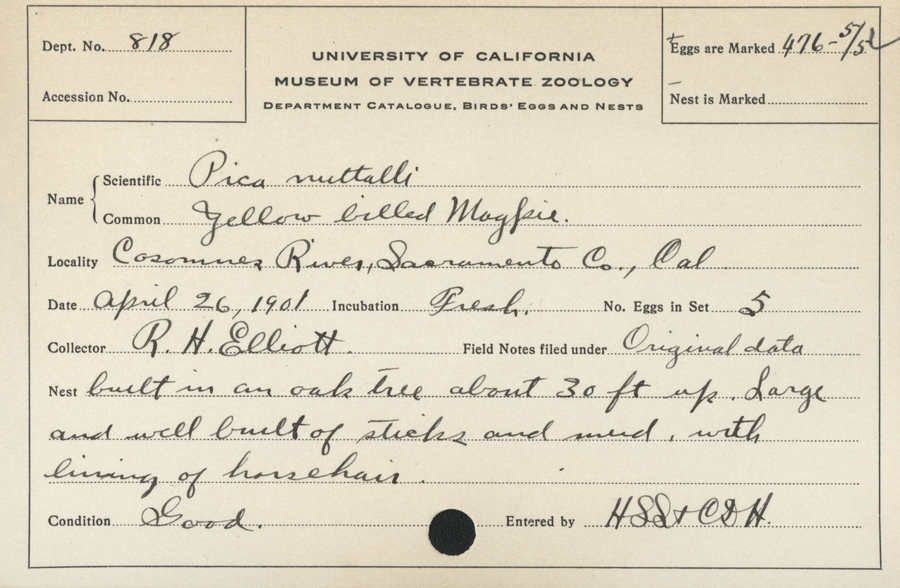 Dept. No. 818
Accession No.
UNIVERSITY OF CALIFORNIA
MUSEUM OF VERTEBRATE ZOOLOGY
DEPARTMENT CATALOGUE, BIRDS' EGGS AND NESTS
Eggs are Marked 476-5/5
Nest is Marked
Name
Scientific Pica nuttalli
Common Yellow billed Magpie.
Locality Cosomnes River, Sacramento Co., Cal
Date April 26, 1901 Incubation Fresh. No. Eggs in Set 5
Collector R. H. Elliott. Field Notes filed under Original data
Nest built in an oak tree about 30 ft up. Large
and well built of sticks and mud, with
lining of horsehair.
Condition Good. Entered by HSS & CDH.